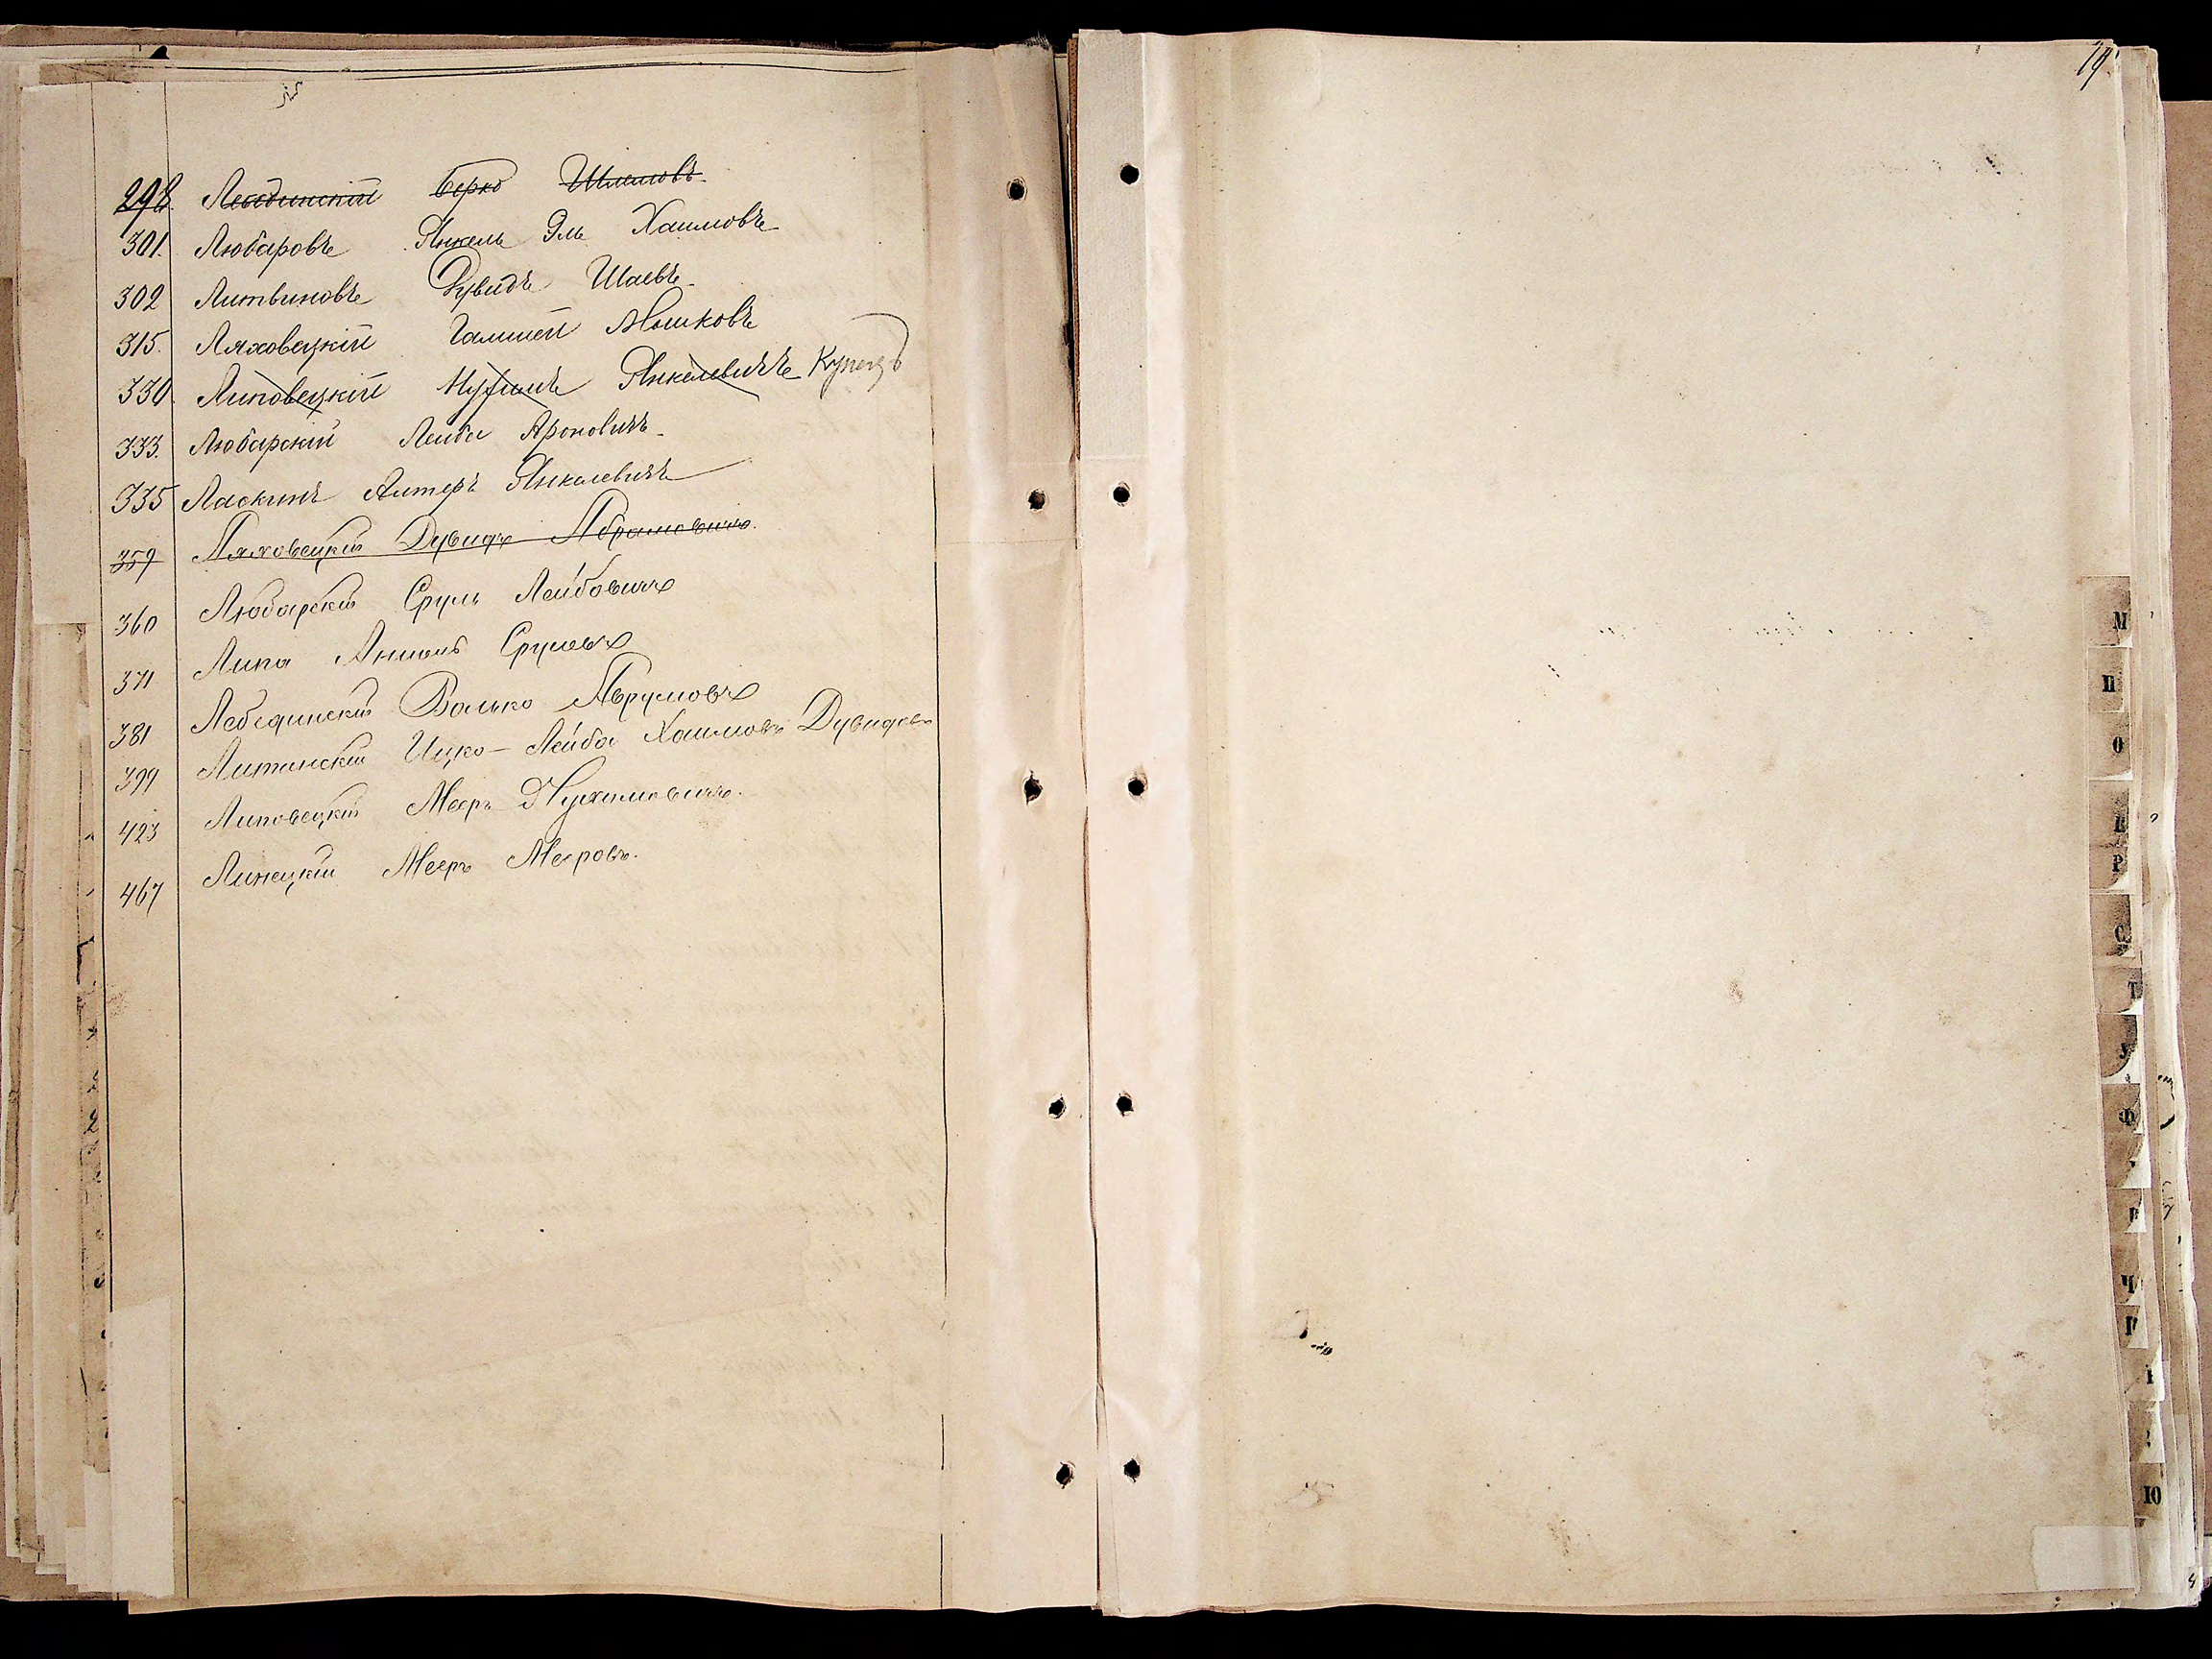 298. Лебединскій Берко Шлемовъ
301. Любаровъ Янкель Эль Хаимовъ
302 Литвиновъ Дувидъ Шаевъ
315. Ляховецкій Мошковъ
330. Липовецкій Нухимъ Янкелевичъ Купецъ
333. Любарскій Лейба Ароновичъ
335 Ласкинъ Алтеръ Янкелевичъ
359 Ляховецкій Дувидъ Абрамовичъ.
360 Любарскій Сруль Лейбовичъ
371 Липа Аншель Срулевъ
381 Лебединскій Волько Аврумовъ
399 Литинскій Ицко-Лейба Хаимовъ Дувидовъ
423 Липовецкій Мееръ Нухимовичъ.
467 Линецкій Мееръ Мееровъ.
19
М
П
О
Р
С
Т
У
Ф
Ч
Ю